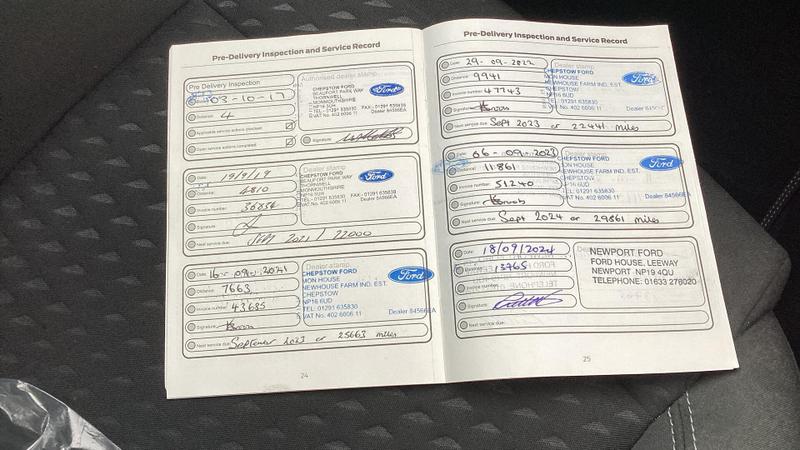 Pre-Delivery Inspection and Service Record
Pre Delivery Inspection
Date: 03-10-17
Distance: 4
Applicable service actions checked:
Open service actions completed:
Authorised dealer stamp
CHEPSTOW FORD
BEAUFORT PARK WAY
THORNWELL
MONMOUTHSHIRE
NP16 5UH
TEL - 01291 635830 FAX - 01291 635830
VAT No. 402 6006 11 Dealer 84566EA
Ford
Signature:
Date: 19/9/19
Distance: 4810
Invoice number:
Signature:
Next service due:
Dealer stamp
CHEPSTOW FORD
BEAUFORT PARK WAY
THORNWELL
MONMOUTHSHIRE
NP16 5UH
TEL - 01291 635830 FAX - 01291 635830
VAT No. 402 6006 11 Dealer 84566EA
Ford
Date: 16-09-2021
Distance: 7663
Invoice number: 43685
Signature:
Next service due: September 2023 or 25663 miles
Dealer stamp
CHEPSTOW FORD
MON HOUSE
NEWHOUSE FARM IND. EST.
CHEPSTOW
NP16 6UD
TEL: 01291 635830
VAT No. 402 6006 11 Dealer 84566EA
Ford
24
Pre-Delivery Inspection and Service Record
Date: 29-09-2022
Distance: 9941
Invoice number: 47743
Signature:
Next service due: Sept 2023 or 22441 miles
Dealer stamp
CHEPSTOW FORD
MON HOUSE
NEWHOUSE FARM IND. EST.
CHEPSTOW
NP16 6UD
TEL: 01291 635830
VAT No. 402 6006 11
Ford
Date: 06-09-2023
Distance: 11861
Invoice number: 51240
Signature:
Next service due: Sept 2024 or 29861 miles
Dealer stamp
CHEPSTOW FORD
MON HOUSE
NEWHOUSE FARM IND. EST.
CHEPSTOW
NP16 6UD
TEL: 01291 635830
VAT No. 402 6006 11 Dealer 84566EA
Ford
Date: 18/09/2024
Distance: 13965
Invoice number:
Signature:
Next service due:
NEWPORT FORD
FORD HOUSE, LEEWAY
NEWPORT NP19 4QU
TELEPHONE: 01633 278020
25